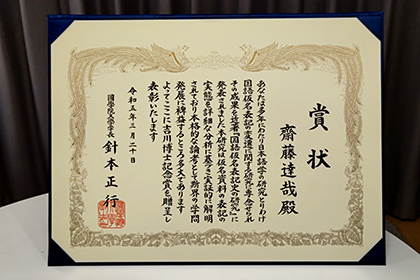 賞状
齋藤達哉殿
あなたは多年にわたり日本語学の研究とりわけ
国語仮名表記の変遷に関する研究に専念せられ
その成果を近著『国語仮名表記史の研究』に
発表されました本研究は仮名資料の表記の
実態を詳細な分析に基づき実証的に解明
されており本格的な論考として斯界の学問
発展に裨益するところ多大であります
よってここに金田一博士記念賞を贈呈し
表彰いたします
令和五年三月二十日
國學院大學学長 針本正行